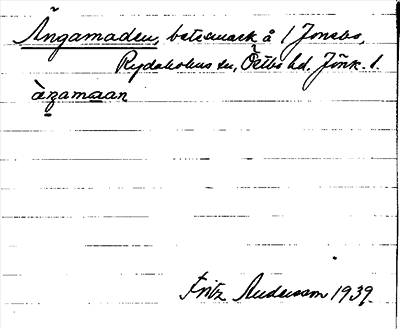 Ängamaden, betesmark å 1 Jonsbo,
Rydaholms sn, Östbo hd. Jönk. l.
àŋamaan
Fritz Andersson 1939.